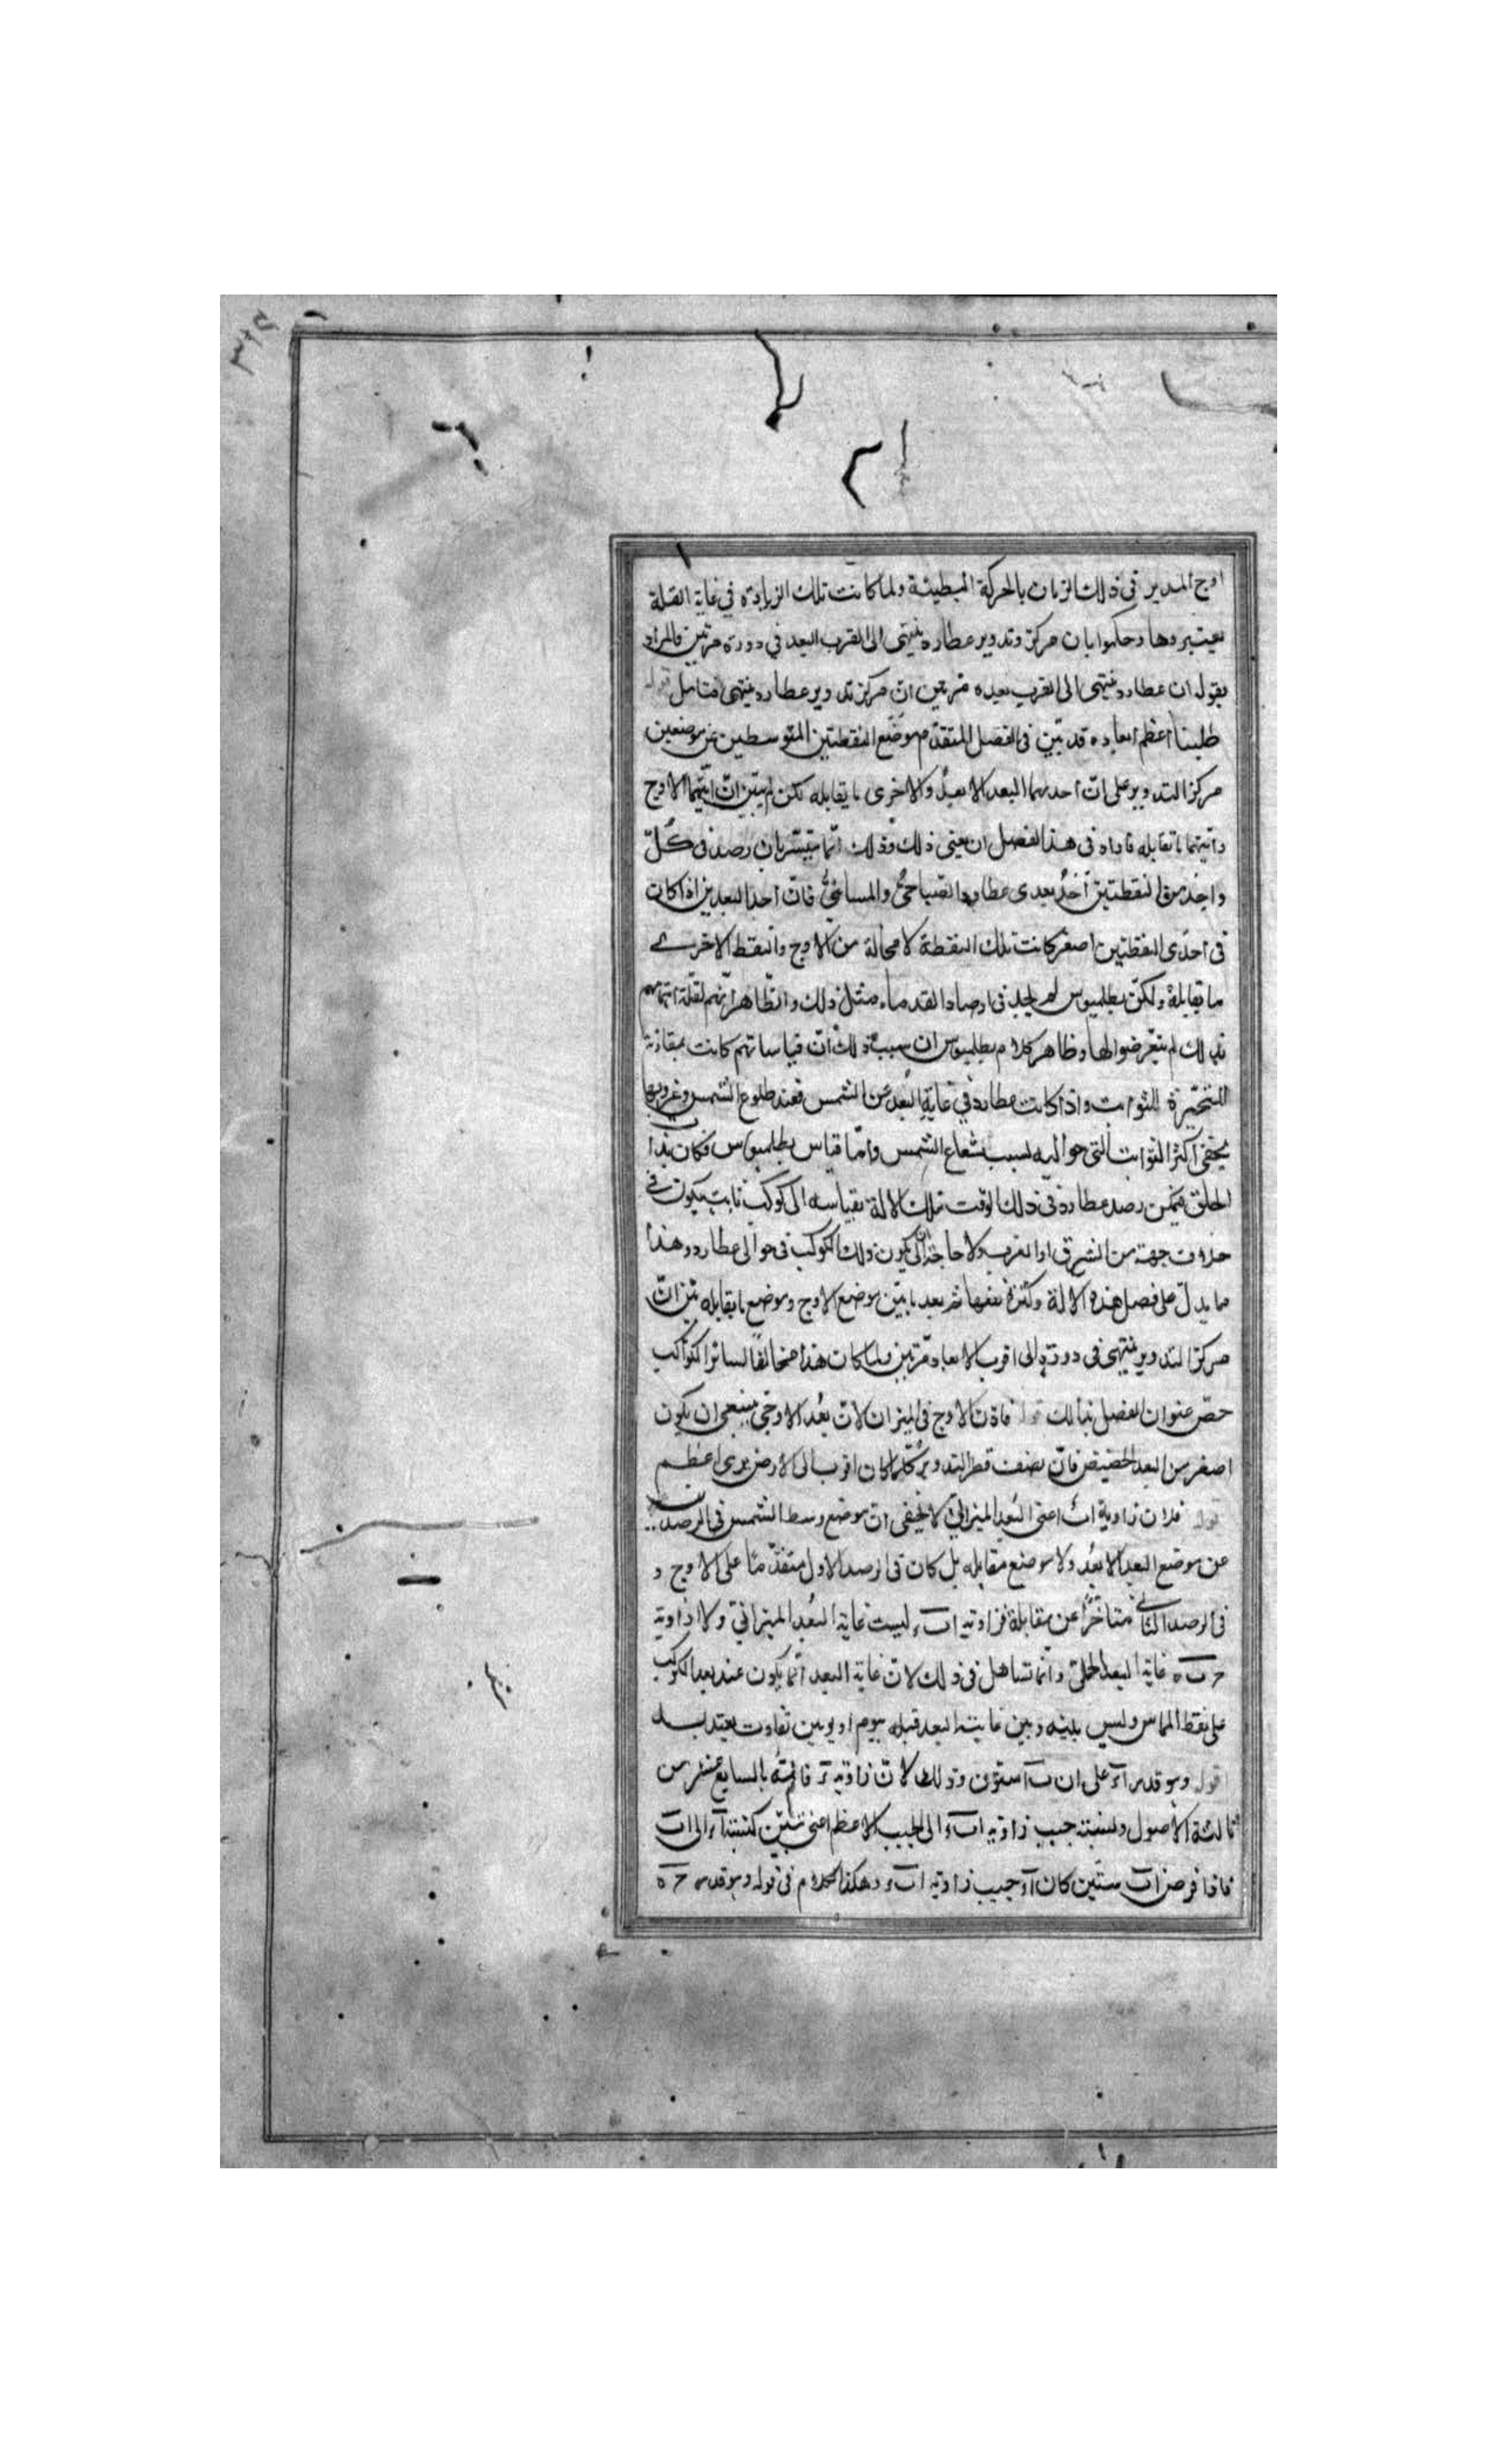 اوج المدير فى ذلك الزمان بالحركة البطيئة ولما كانت تلك الزيادة في غاية القلة
يعتبروها وحكموا بان مركز وتدوير عطارد ينتهى الى القرب البعد في دورة مرتين فالمراد
بقوله ان عطارد ينتهى الى اقرب بعيده مرتين انّ مركز تدوير عطارد ينتهى فتامل قوله
طلبنا اعظم ابعاده قد تبيّن فى الفصل المتقدّم موضع النقطتين المتوسطين عن موضعين
مركز التدوير على انّ احديهما البعد الابعد والاخرى ما يقابله لكن لم يتبيّن انّ ايّتهما الاوج
وايّتهما ما تقابله فاراد فى هذا الفصل ان يعيّن ذلك وذلك انّما يتيسّر بان رصد فى كُلّ
واحد من النقطتين احد بعدى عطارد الصباحىّ والمسائىّ فانّ احد البعدين اذا كان
فى احدى النقطتين اصغر كانت تلك النقطة لا محالة من الاوج والنقط الاخرى
ما تقابلهُ ولكنّ بطلميوس لم يجد فى ارصاد القدماء مثل ذلك والظاهر انّهم لقلّة اهتمامهم
بذلك لم يتعرضوا لها وظاهر كلام بطلميوس ان سبب ذلك انّ قياساتهم كانت بمقارنة
المتحيّرة الثوابت واذا كانت عطارد في غايةِ البُعد عن الشمس فعند طلوع الشمس وغروبها
يخفى اكثر الثوابت التى حواليه لسبب شعاع الشمس وامّا قياس بطلميوس فكان بذات
الحلق فيمكن رصد عطارد فى ذلك الوقت بتلك الالة بقياسه الى كوكب ثابت يكون فى
خلاف جهته من الشرق او الغرب ولا حاجة الى ان يكون ذلك الكوكب فى حوالى عطارد وهذا
مما يدلّ على فضل هذه الالة وكثرة نفعها ثم بعد ما بيّن موضع الاوج وموضع ما يقابله بيّن انّ
مركز التدوير ينتهى فى دورته الى اقرب الابعاد مرّتين ولما كان هذا مخالفًا لسائر الكواكب
خصّ عنوان الفصل بذلك قوله فاذن الاوج فى الميزان لانّ بُعد الاوجى ينبغى ان يكون
اصغر من البعد الحضيضى فانّ نصف قطر التدوير كلّما كان اقرب الى الارض يرى اعظم
قوله فلان زاوية ا ب ء اعنى البُعد الميزانىّ لا يخفى انّ موضع وسط الشمس فى الرصدين
عن موضع البعد الابعد ولا موضع مقابله بل كان فى الرصد الاول متقدّمًا على الاوج و
فى الرصد الثانى متاخّرًا عن مقابلة فزاوية ا ب ء ليست غاية البُعد الميزانىّ ولا زاوية
ح ب ه غاية البعد الحملىّ وانّما تساهل فى ذلك لانّ غاية البعد انّما يكون عند بعد الكوكب
على نقط المماس وليس بينه وبين غايته البعد قبله بيوم او يومين تفاوت يعتد به
قوله وهو قدر ا ء على ان ب ا ستون وذلك لانّ زاوية ء قائمةُ بالسابع عشر من
ثالثة الاصول ولنسبته جيب زاوية ا ب ء الى الجيب الاعظم اعنى ستّين كنسبة ا ء الى ا ب
فاذا فرض ا ب ستّين كان ا ء جيب زاوية ا ب ء وهكذا الكلام فى قوله وهو قدر ح ه